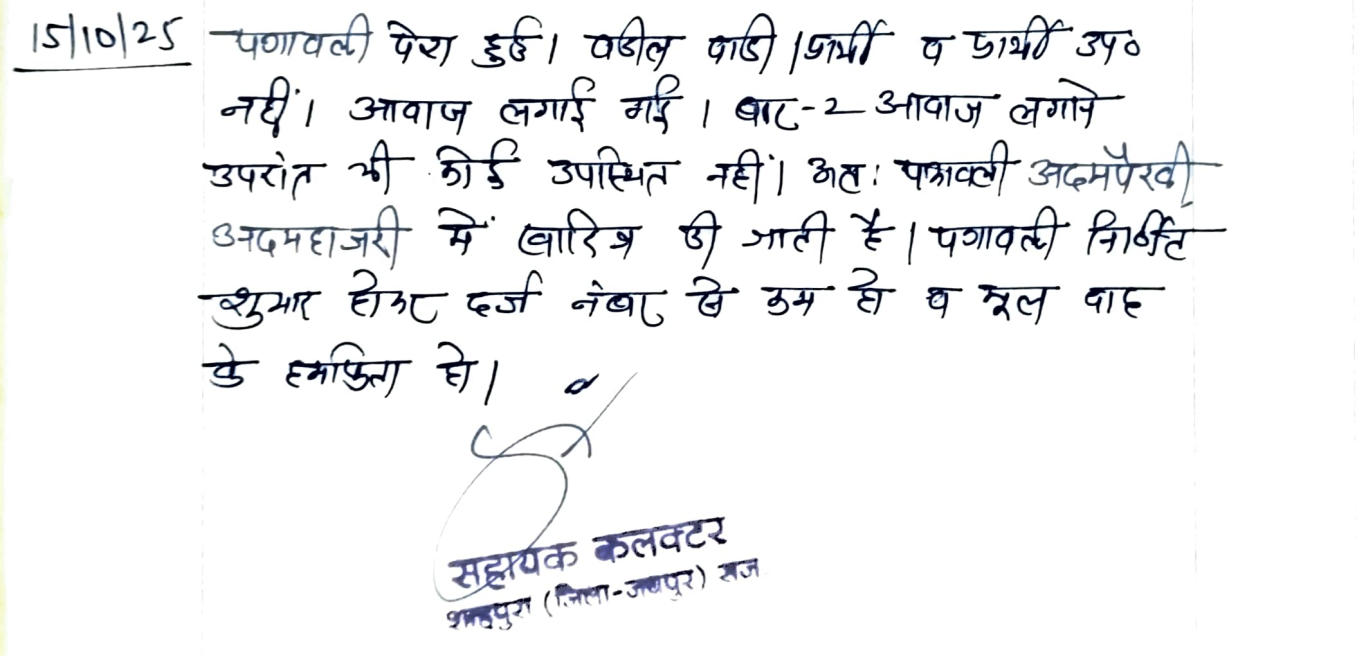 15/10/25 पत्रावली पेश हुई। वकील वादी/प्रार्थी व प्रार्थी उप०
नहीं। आवाज लगाई गई। बार-2 आवाज लगाने
उपरांत भी कोई उपस्थित नहीं। अतः पत्रावली अदमपैरवी
अदमहाजरी में खारिज की जाती है। पत्रावली निर्णित
शुमार होकर दर्ज नंबर से कम हो व मूल वाद
के हो।
सहायक कलक्टर
शाहपुरा (जिला-जयपुर) राज